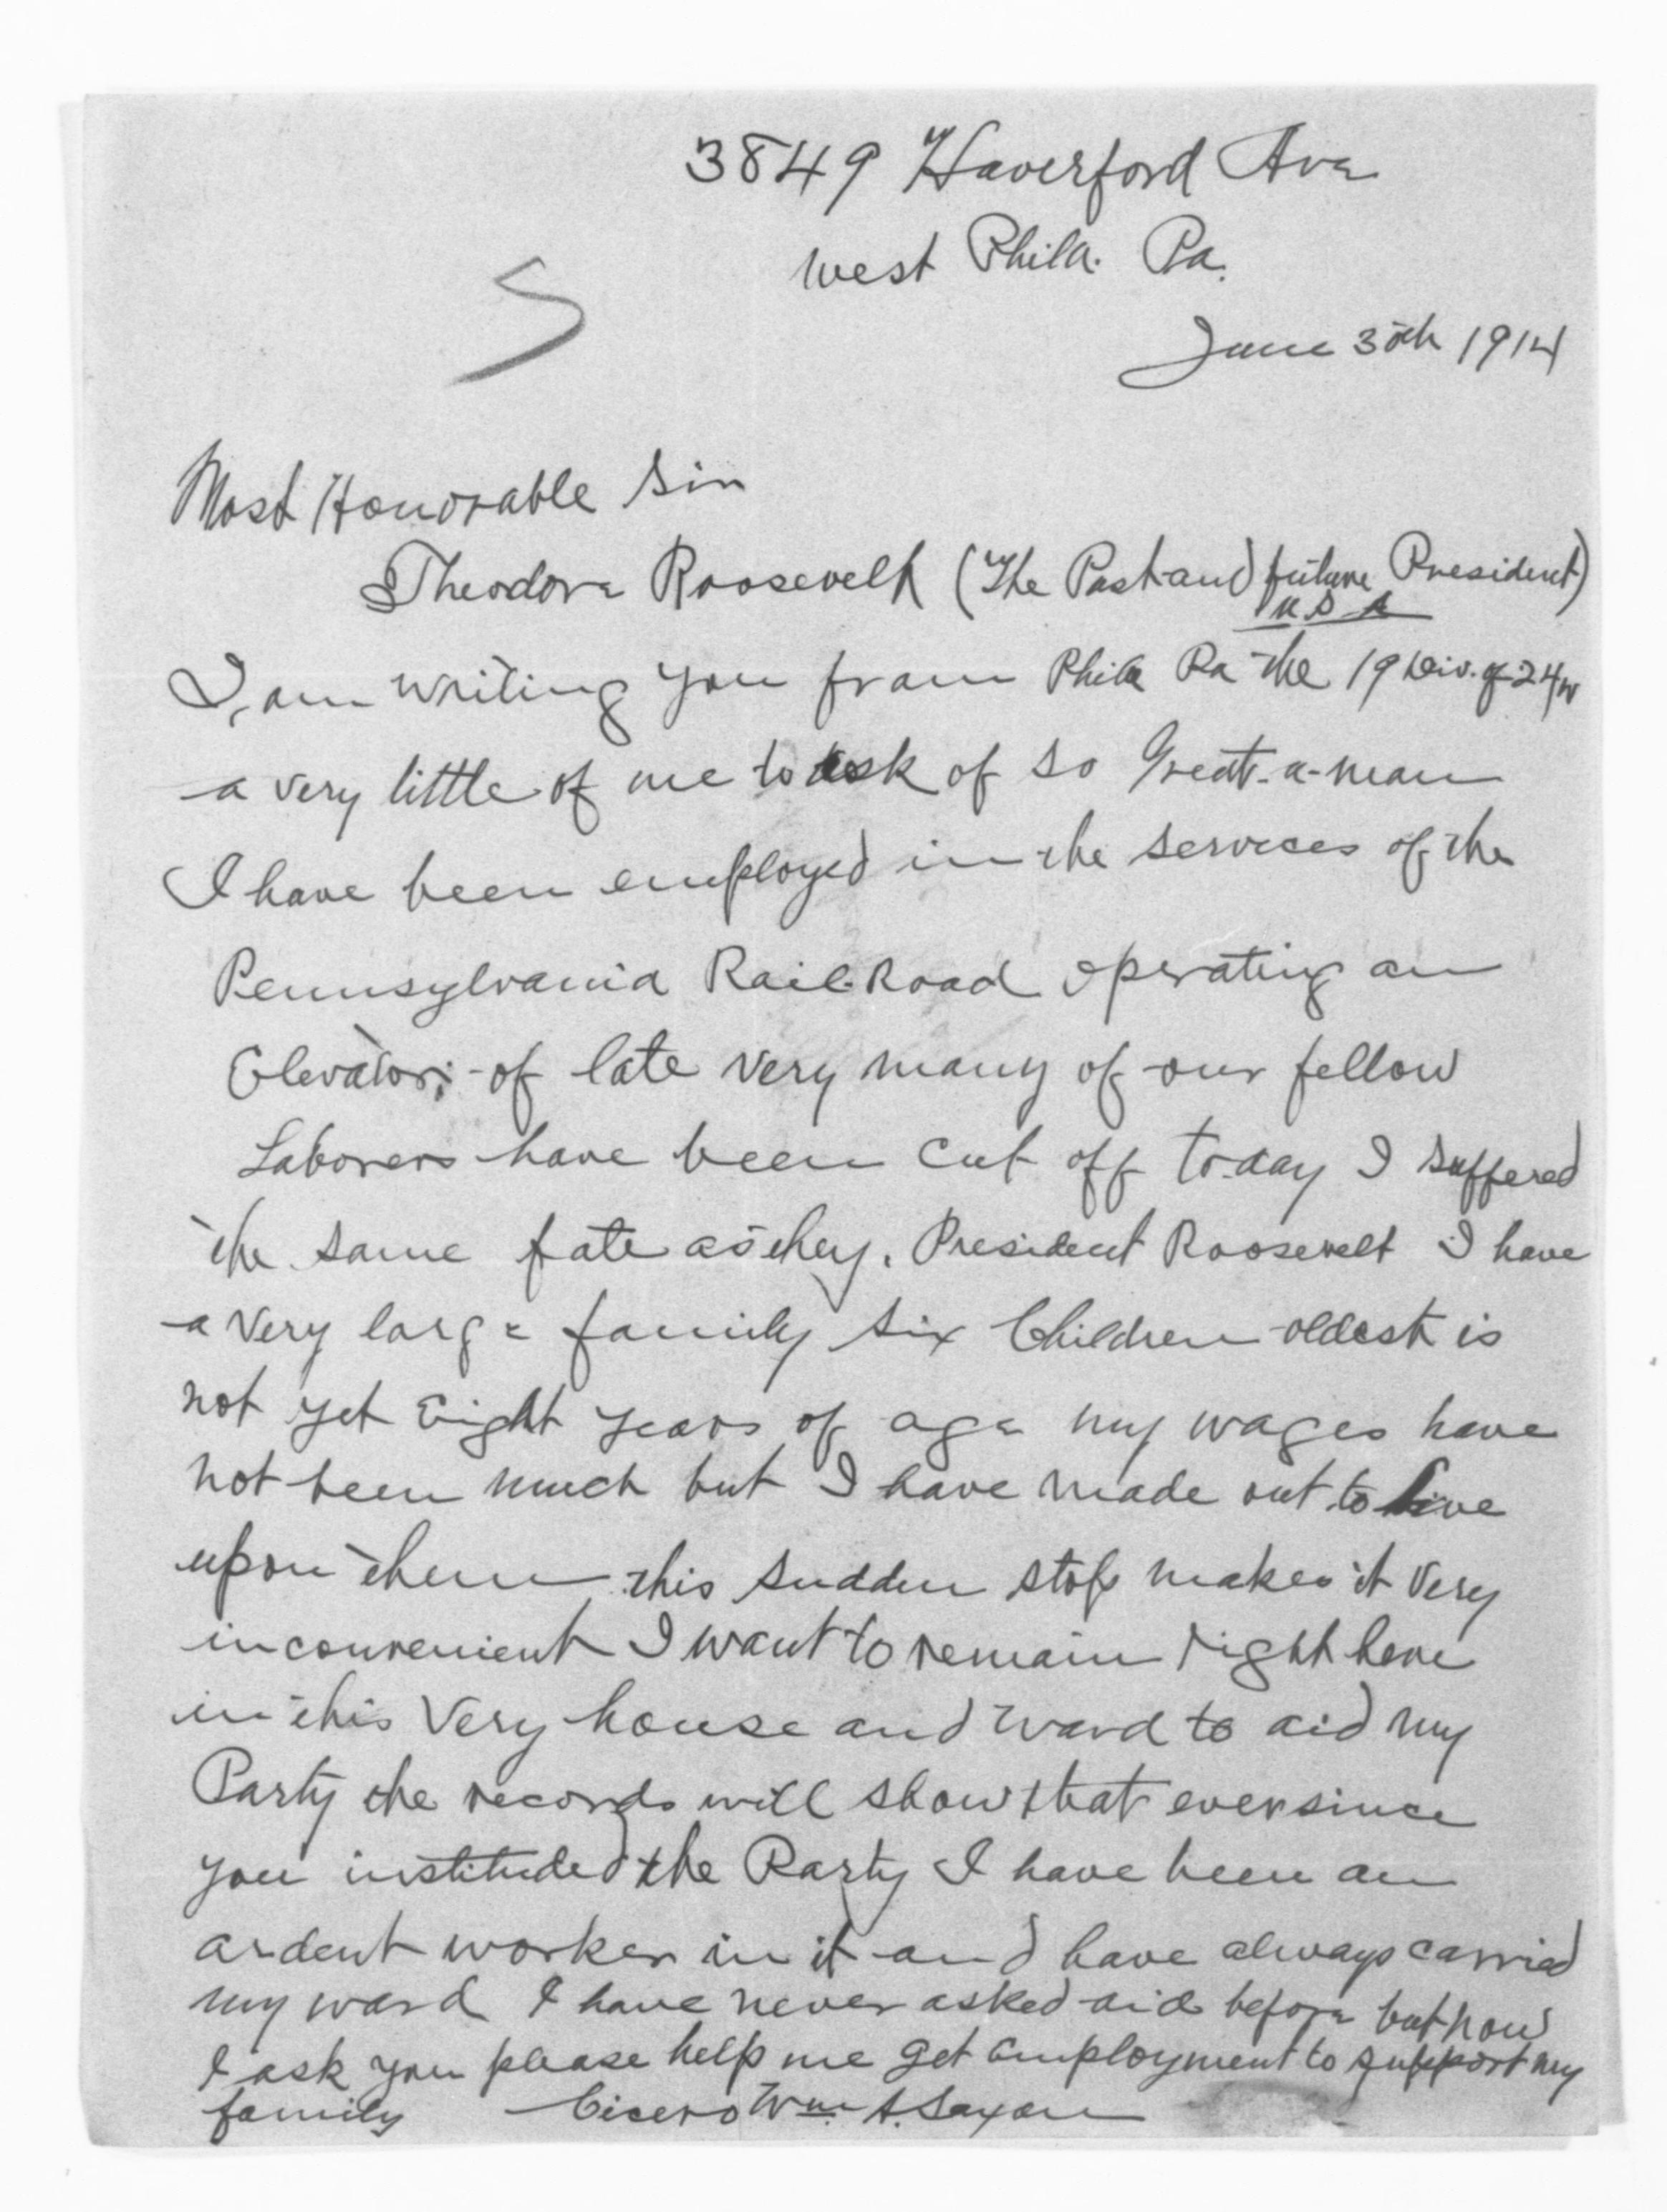 3849 Haverford Ave
West Phila. Pa.
S
June 30th 1914
Most Honorable Sir
Theodore Roosevelt (The Past and future President)
U S A
I, am writing you from Phila Pa the 19 Div. of 24 W
a very little of me to ask of so Great-a-man
I have been employed in the services of the
Pennsylvania Rail-Road operating an
Elevator; of late very many of our fellow
Laborers have been cut off to-day I suffered
the same fate as they. President Roosevelt I have
a very large family six Children oldest is
not yet Eight years of age my wages have
not been much but I have made out to live
upon them this sudden stop makes it very
inconvenient I want to remain right here
in this very house and ward to aid my
Party the records will show that ever since
you instituded the Party I have been an
ardent worker in it and have always carried
my ward I have never asked aid before but now
I ask you please help me get employment to support my
family Cicero Wm. A. Saxon